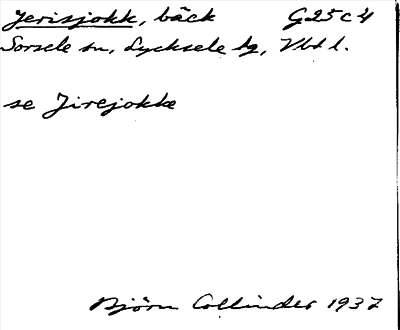 Jerisjokk, bäck G25c4
Sorsele sn, Lycksele lg, Vbt l.
se Jirejokke
Björn Collinder 1937